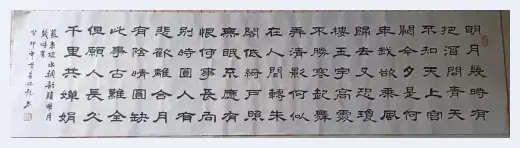 明月幾時有
把酒問青天
不知天上宮
闕今夕是何
年我欲乘風
歸去又恐瓊
樓玉宇高處
不勝寒起舞
弄清影何似
在人間轉朱
閣低綺戶照
無眠不應有
恨何事長向
別時圓人有
悲歡離合月
有陰晴圓缺
此事古難全
但願人長久
千里共嬋娟
蘇東坡水調歌頭明月
幾時有
癸卯年